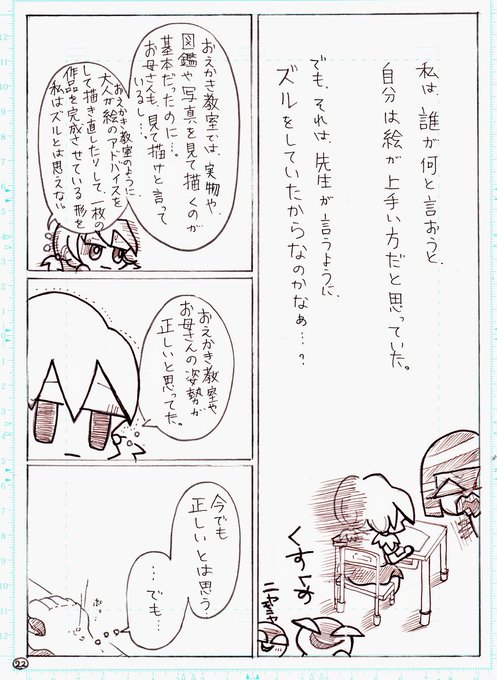 私は、誰が何と言おうと、
自分は絵が上手い方だと思っていた。
でも、それは、先生が言うように、
ズルをしていたからなのかなぁ…?
くすくす
ニヤニヤ
おえかき教室では、実物や、
図鑑や写真を見て描くのが
基本だったのに…。
お母さんも、見て描けと言って
いるし…。
おえかき教室のように、
大人が絵のアドバイスを
して描き直したりして、一枚の
作品を完成させている形を
私はズルとは思えない
おえかき教室や
お母さんの姿勢が
正しいと思ってた。
今でも
正しいとは思う。
…でも…
22